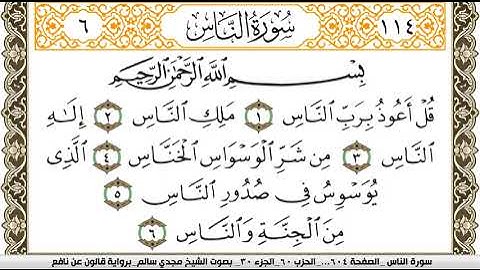 ١١٤ سُورَةُ النَّاسِ ٦
بِسْمِ اللَّهِ الرَّحْمَٰنِ الرَّحِيمِ
قُلْ أَعُوذُ بِرَبِّ النَّاسِ ١ مَلِكِ النَّاسِ ٢ إِلَٰهِ
النَّاسِ ٣ مِن شَرِّ الْوَسْوَاسِ الْخَنَّاسِ ٤ الَّذِي
يُوَسْوِسُ فِي صُدُورِ النَّاسِ ٥
مِنَ الْجِنَّةِ وَالنَّاسِ ٦
سورة الناس _الصفحة ٦٠٤..._الحزب ٦٠_الجزء ٣٠_ بصوت الشيخ مجدي سالم_برواية قالون عن نافع